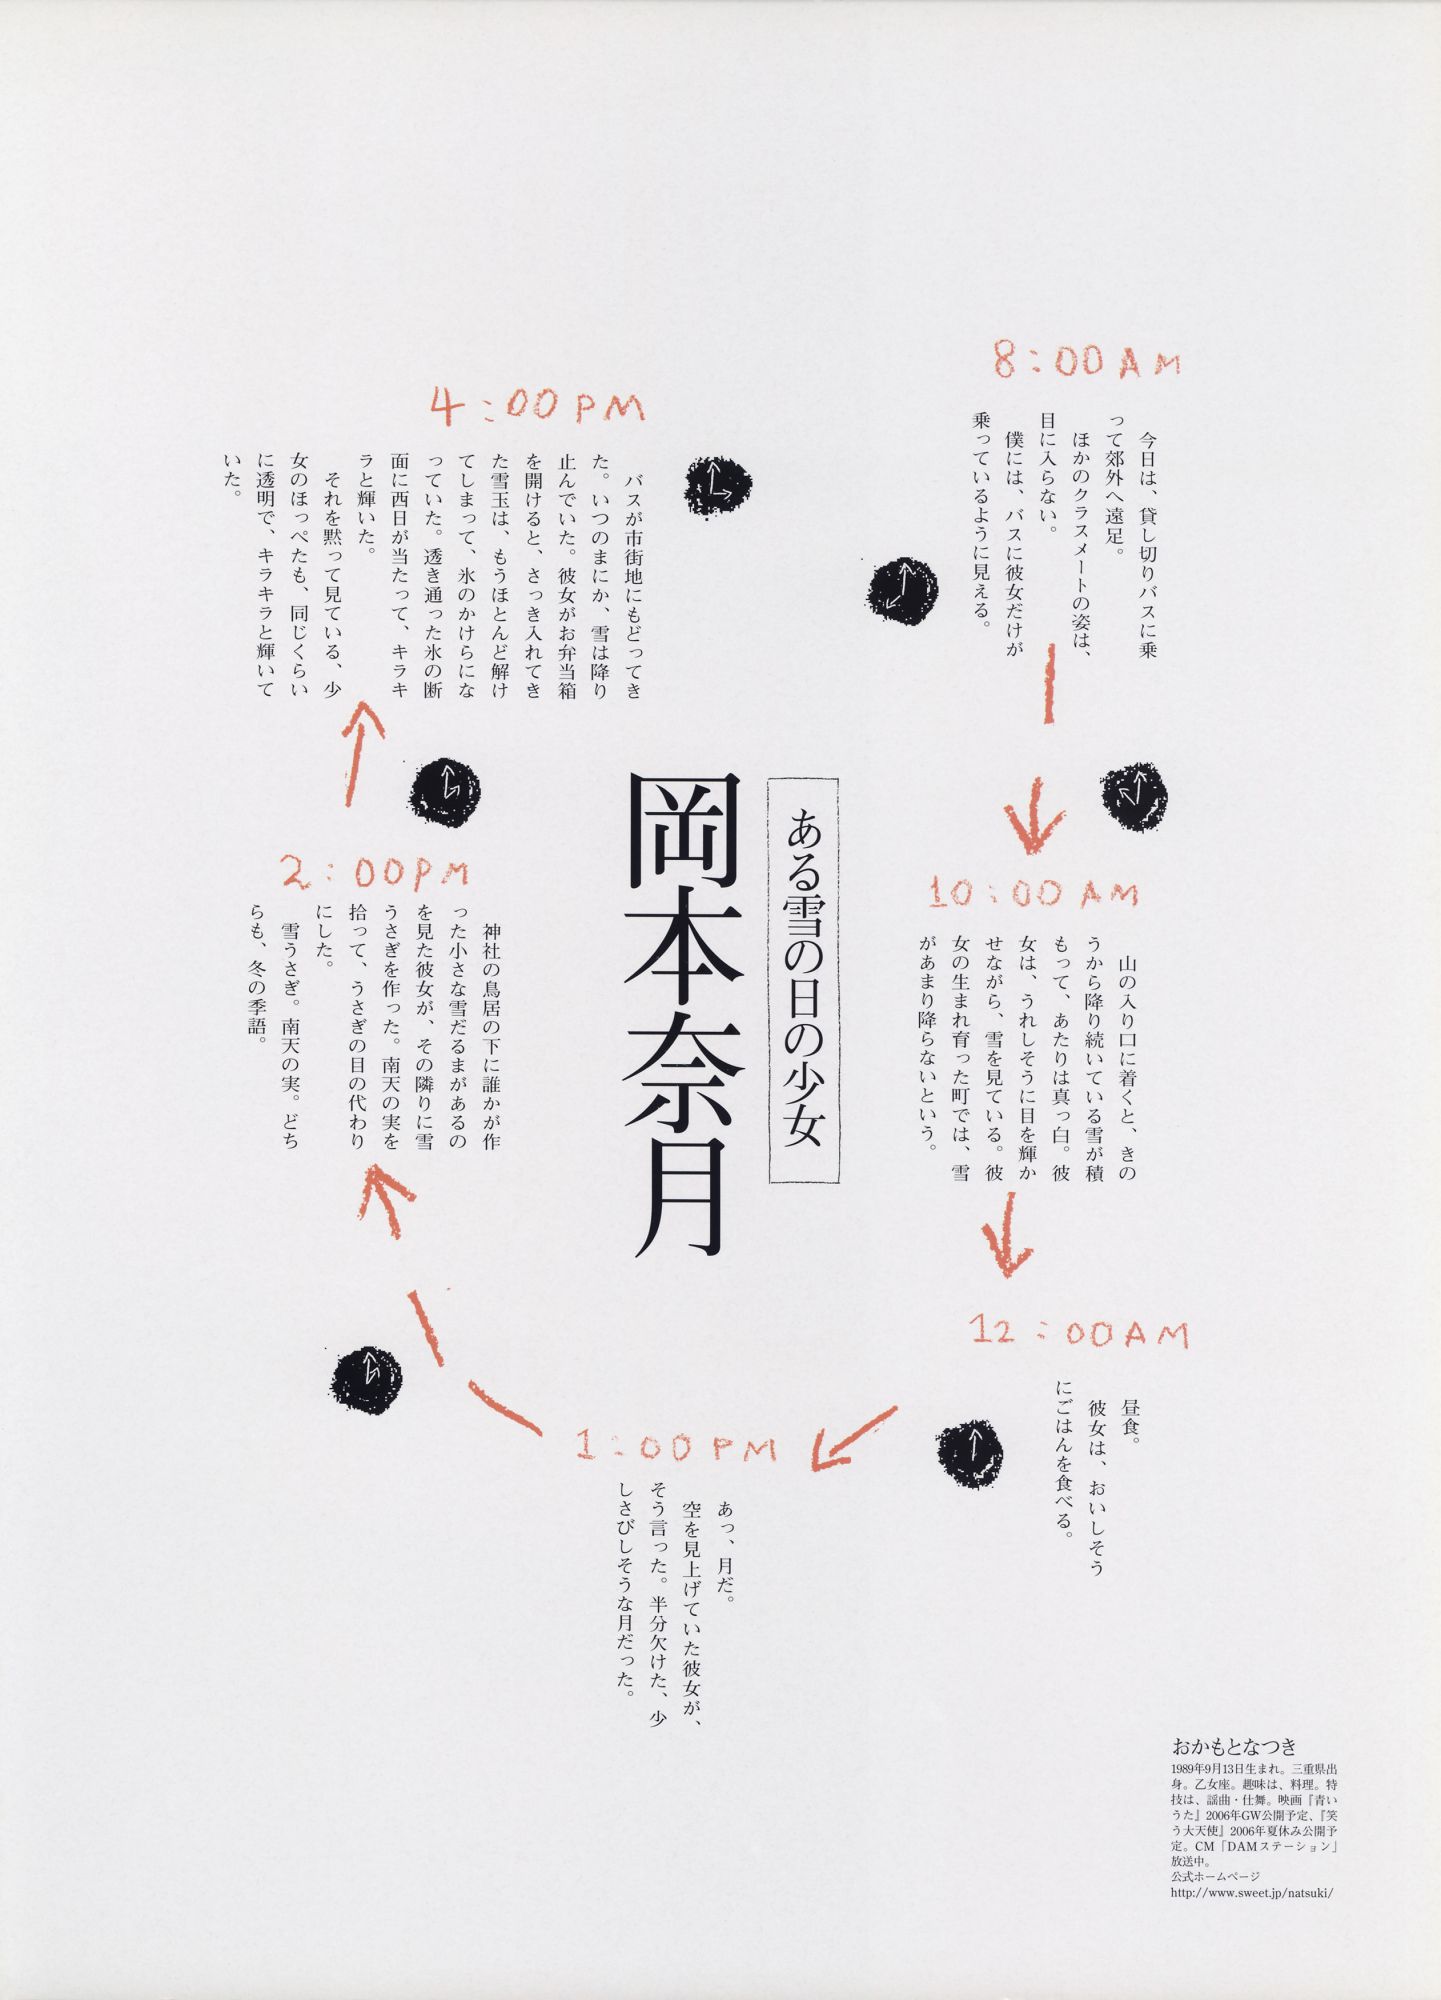 ある雪の日の少女
岡本奈月
8:00AM
今日は、貸し切りバスに乗
って郊外へ遠足。
ほかのクラスメートの姿は、
目に入らない。
僕には、バスに彼女だけが
乗っているように見える。
10:00AM
山の入り口に着くと、きの
うから降り続いている雪が積
もって、あたりは真っ白。彼
女は、うれしそうに目を輝か
せながら、雪を見ている。彼
女の生まれ育った町では、雪
があまり降らないという。
12:00AM
昼食。
彼女は、おいしそう
にごはんを食べる。
1:00PM
あっ、月だ。
空を見上げていた彼女が、
そう言った。半分欠けた、少
しさびしそうな月だった。
2:00PM
神社の鳥居の下に誰かが作
った小さな雪だるまがあるの
を見た彼女が、その隣りに雪
うさぎを作った。南天の実を
拾って、うさぎの目の代わり
にした。
雪うさぎ。南天の実。どち
らも、冬の季語。
4:00PM
バスが市街地にもどってき
た。いつのまにか、雪は降り
止んでいた。彼女がお弁当箱
を開けると、さっき入れてき
た雪玉は、もうほとんど解け
てしまって、氷のかけらにな
っていた。透き通った氷の断
面に西日が当たって、キラキ
ラと輝いた。
それを黙って見ている、少
女のほっぺたも、同じくらい
に透明で、キラキラと輝いて
いた。
おかもとなつき
1989年9月13日生まれ。三重県出
身。乙女座。趣味は、料理。特
技は、謡曲・仕舞。映画『青い
うた』2006年GW公開予定、『笑
う大天使』2006年夏休み公開予
定。CM「DAMステーション」
放送中。
公式ホームページ
http://www.sweet.jp/natsuki/